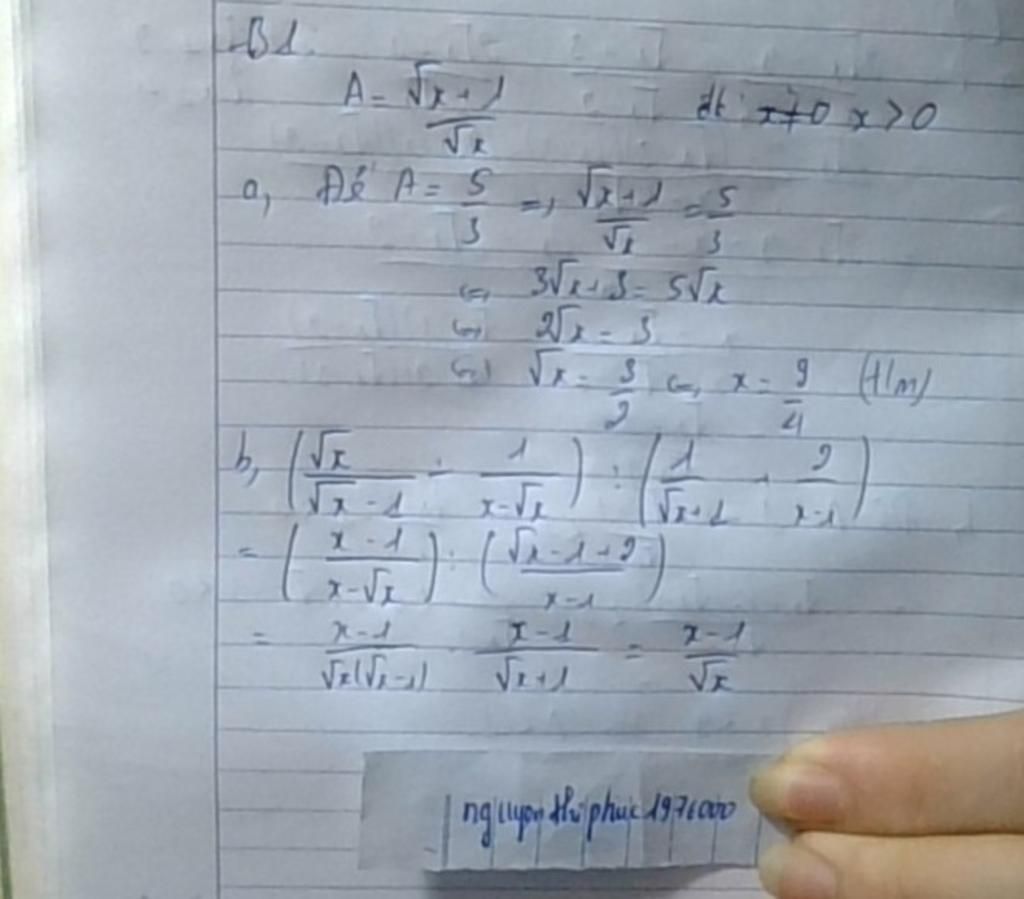 B1.
A = (√x + 1)/√x đk: x ≠ 0 x > 0
a, Để A = 5/3 => (√x + 1)/√x = 5/3
<=> 3√x + 3 = 5√x
<=> 2√x = 3
<=> √x = 3/2 <=> x = 9/4 (t/m)
b, (√x/(√x - 1) - 1/(x - √x)) : (1/(√x + 1) + 2/(x - 1))
= ((x - 1)/(x - √x)) : ((√x - 1 + 2)/(x - 1))
= (x - 1)/(√x(√x - 1)) . (x - 1)/(√x + 1) = (x - 1)/√x
nguyen thi phuc 1976000